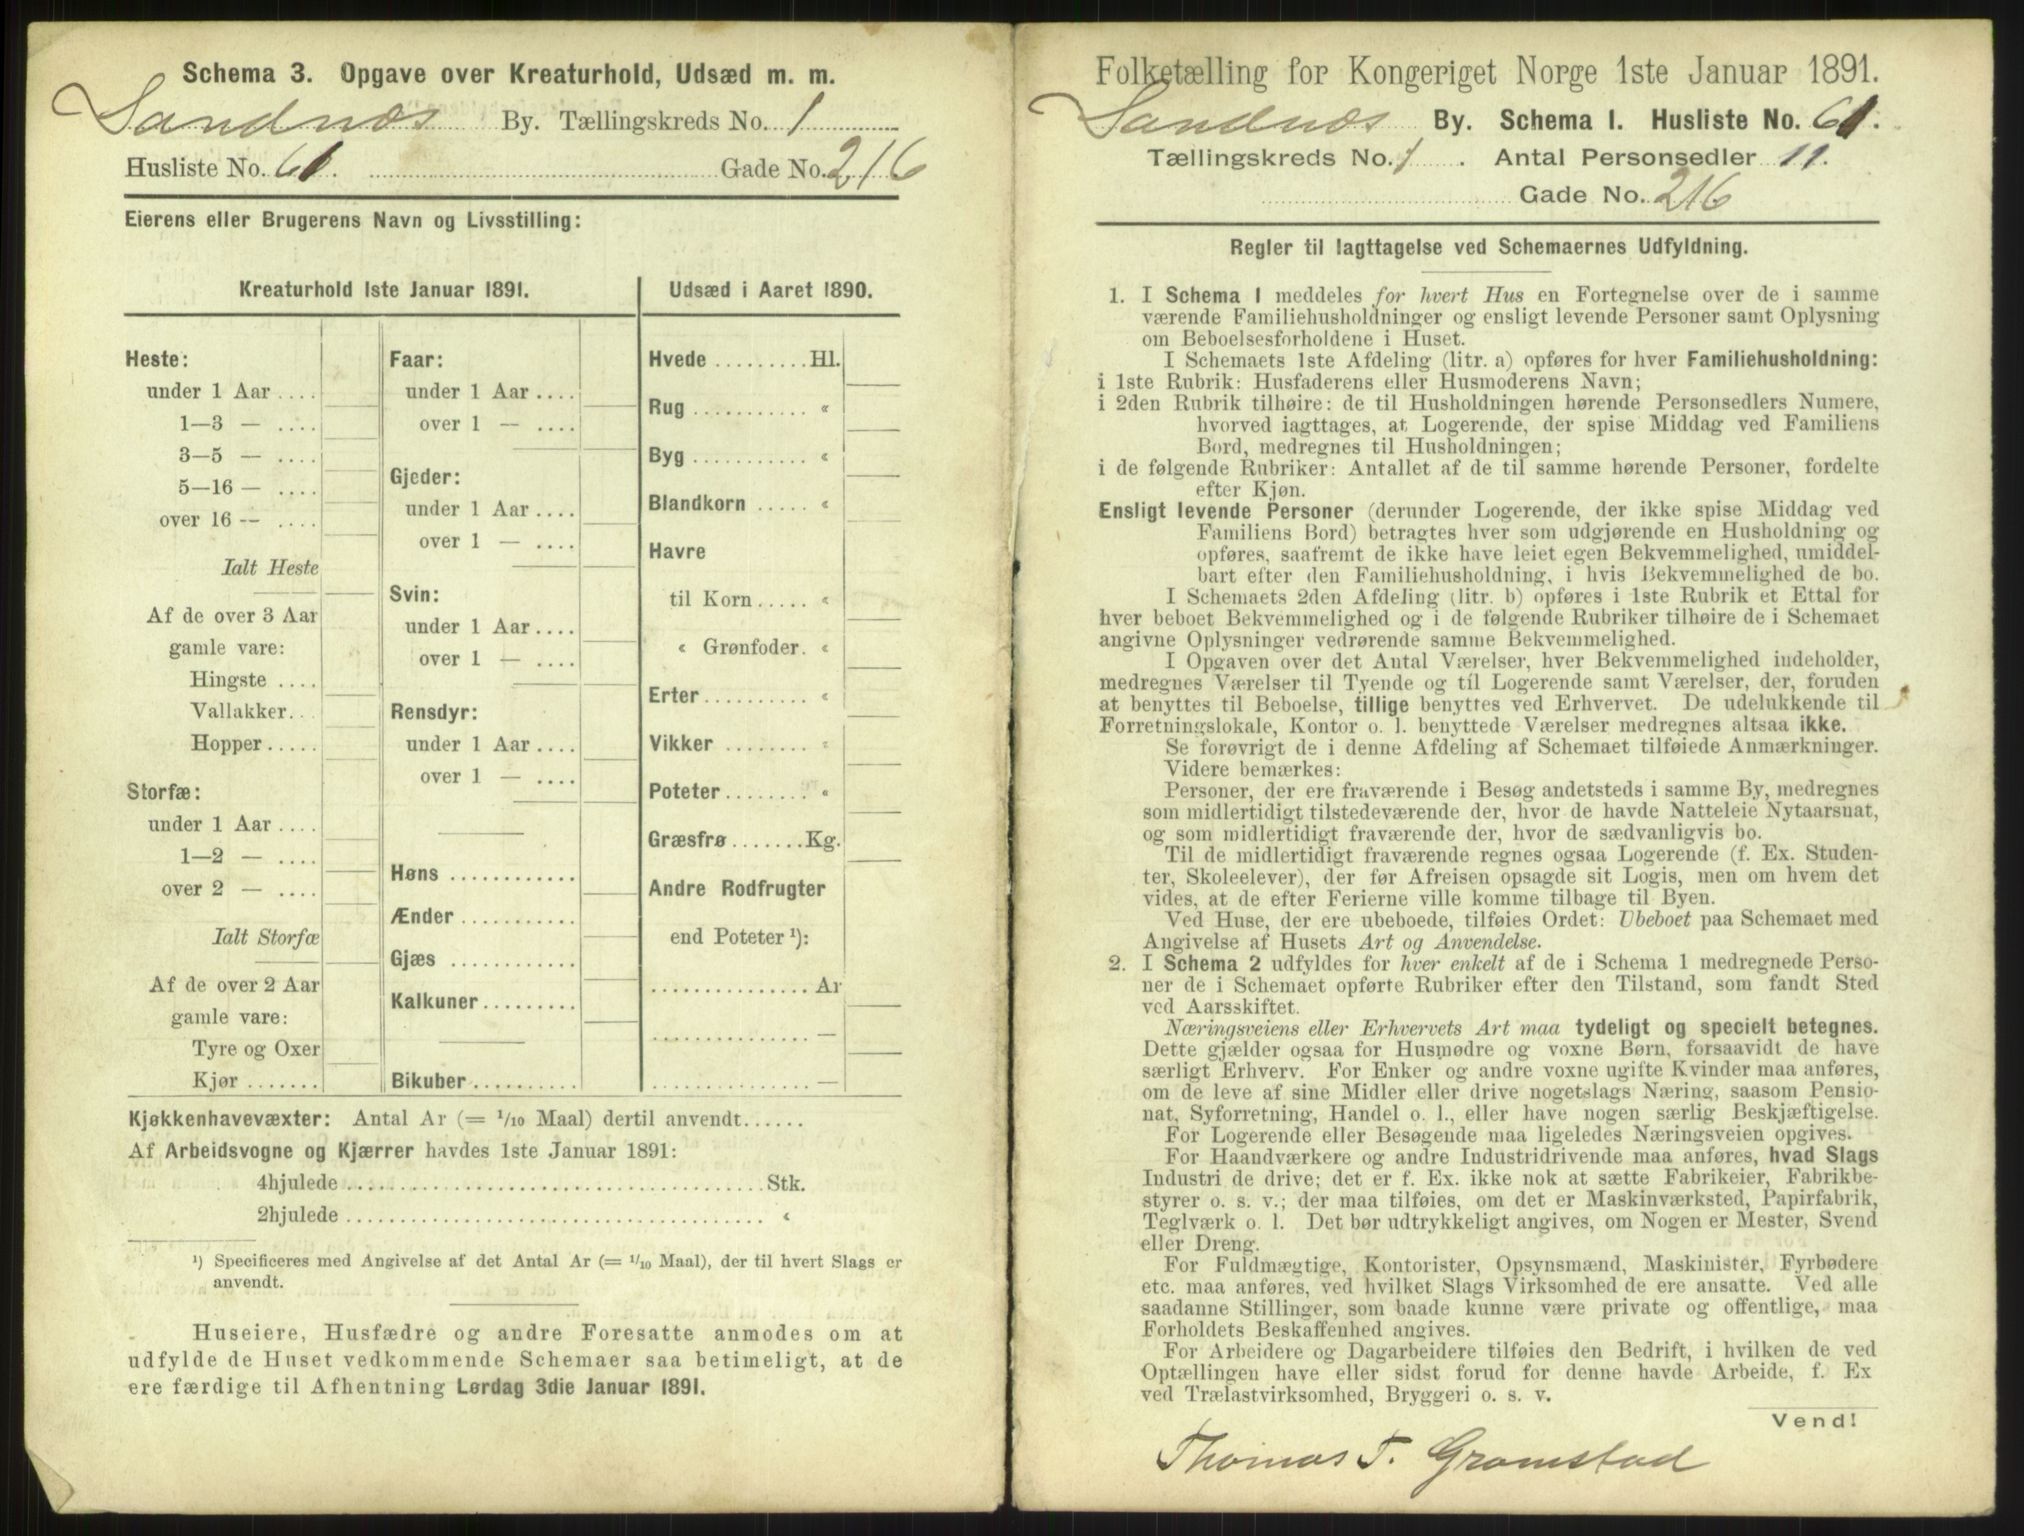 Schema 3. Opgave over Kreaturhold, Udsæd m. m.
Sandnæs By. Tællingskreds No. 1
Husliste No. 61. Gade No. 216
Eierens eller Brugerens Navn og Livsstilling:
Kreaturhold 1ste Januar 1891.
Heste:
under 1 Aar ....
1—3 — ....
3—5 — ....
5—16 — ....
over 16 — ....
Ialt Heste
Af de over 3 Aar
gamle vare:
Hingste ....
Vallakker...
Hopper.....
Storfæ:
under 1 Aar ....
1—2 — ....
over 2 — ....
Ialt Storfæ
Af de over 2 Aar
gamle vare:
Tyre og Oxer
Kjør .......
Faar:
under 1 Aar ....
over 1 — ....
Gjeder:
under 1 Aar ....
over 1 — ....
Svin:
under 1 Aar ....
over 1 — ....
Rensdyr:
under 1 Aar ....
over 1 — ....
Høns ............
Ænder ...........
Gjæs ............
Kalkuner.........
Bikuber ..........
Udsæd i Aaret 1890.
Hvede .........Hl.
Rug ........... «
Byg ........... «
Blandkorn ..... «
Havre
til Korn..... «
« Grønfoder. «
Erter.......... «
Vikker ........ «
Poteter........ «
Græsfrø .......Kg.
Andre Rodfrugter
end Poteter ¹):
............... Ar
............... —
............... —
Kjøkkenhavevæxter: Antal Ar (= 1/10 Maal) dertil anvendt......
Af Arbeidsvogne og Kjærrer havdes 1ste Januar 1891:
4hjulede ........................................ Stk.
2hjulede ........................................ «
¹) Specificeres med Angivelse af det Antal Ar (= 1/10 Maal), der til hvert Slags er
anvendt.
Huseiere, Husfædre og andre Foresatte anmodes om at
udfylde de Huset vedkommende Schemaer saa betimeligt, at de
ere færdige til Afhentning Lørdag 3die Januar 1891.
Folketælling for Kongeriget Norge 1ste Januar 1891.
Sandnæs By. Schema I. Husliste No. 61.
Tællingskreds No. 1. Antal Personsedler 11.
Gade No. 216
Regler til Iagttagelse ved Schemaernes Udfyldning.
1. I Schema I meddeles for hvert Hus en Fortegnelse over de i samme
værende Familiehusholdninger og ensligt levende Personer samt Oplysning
om Beboelsesforholdene i Huset.
I Schemaets 1ste Afdeling (litr. a) opføres for hver Familiehusholdning:
i 1ste Rubrik: Husfaderens eller Husmoderens Navn;
i 2den Rubrik tilhøire: de til Husholdningen hørende Personsedlers Numere,
hvorved iagttages, at Logerende, der spise Middag ved Familiens
Bord, medregnes til Husholdningen;
i de følgende Rubriker: Antallet af de til samme hørende Personer, fordelte
efter Kjøn.
Ensligt levende Personer (derunder Logerende, der ikke spise Middag ved
Familiens Bord) betragtes hver som udgjørende en Husholdning og
opføres, saafremt de ikke have leiet egen Bekvemmelighed, umiddel-
bart efter den Familiehusholdning, i hvis Bekvemmelighed de bo.
I Schemaets 2den Afdeling (litr. b) opføres i 1ste Rubrik et Ettal for
hver beboet Bekvemmelighed og i de følgende Rubriker tilhøire de i Schemaet
angivne Oplysninger vedrørende samme Bekvemmelighed.
I Opgaven over det Antal Værelser, hver Bekvemmelighed indeholder,
medregnes Værelser til Tyende og til Logerende samt Værelser, der, foruden
at benyttes til Beboelse, tillige benyttes ved Erhvervet. De udelukkende til
Forretningslokale, Kontor o. l. benyttede Værelser medregnes altsaa ikke.
Se forøvrigt de i denne Afdeling af Schemaet tilføiede Anmærkninger.
Videre bemærkes:
Personer, der ere fraværende i Besøg andetsteds i samme By, medregnes
som midlertidigt tilstedeværende der, hvor de havde Natteleie Nytaarsnat,
og som midlertidigt fraværende der, hvor de sædvanligvis bo.
Til de midlertidigt fraværende regnes ogsaa Logerende (f. Ex. Studen-
ter, Skoleelever), der før Afreisen opsagde sit Logis, men om hvem det
vides, at de efter Ferierne ville komme tilbage til Byen.
Ved Huse, der ere ubeboede, tilføies Ordet: Ubeboet paa Schemaet med
Angivelse af Husets Art og Anvendelse.
2. I Schema 2 udfyldes for hver enkelt af de i Schema 1 medregnede Perso-
ner de i Schemaet opførte Rubriker efter den Tilstand, som fandt Sted
ved Aarsskiftet.
Næringsveiens eller Erhvervets Art maa tydeligt og specielt betegnes.
Dette gjælder ogsaa for Husmødre og voxne Børn, forsaavidt de have
særligt Erhverv. For Enker og andre voxne ugifte Kvinder maa anføres,
om de leve af sine Midler eller drive nogetslags Næring, saasom Pensio-
nat, Syforretning, Handel o. l., eller have nogen særlig Beskjæftigelse.
For Logerende eller Besøgende maa ligeledes Næringsveien opgives.
For Haandværkere og andre Industridrivende maa anføres, hvad Slags
Industri de drive; det er f. Ex. ikke nok at sætte Fabrikeier, Fabrikbe-
styrer o. s. v.; der maa tilføies, om det er Maskinværksted, Papirfabrik,
Teglværk o. l. Det bør udtrykkeligt angives, om Nogen er Mester, Svend
eller Dreng.
For Fuldmægtige, Kontorister, Opsynsmænd, Maskinister, Fyrbødere
etc. maa anføres, ved hvilket Slags Virksomhed de ere ansatte. Ved alle
saadanne Stillinger, som baade kunne være private og offentlige, maa
Forholdets Beskaffenhed angives.
For Arbeidere og Dagarbeidere tilføies den Bedrift, i hvilken de ved
Optællingen have eller sidst forud for denne havde Arbeide, f. Ex
ved Trælastvirksomhed, Bryggeri o. s. v.
Vend!
Thomas T. Gramstad